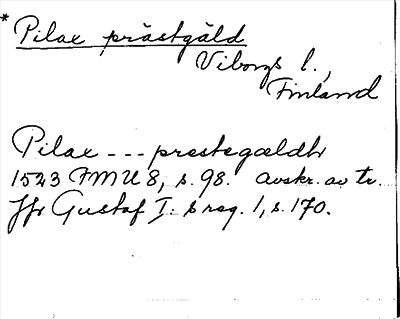 * Pilax prästgäld
Viborgs l.,
Finland
Pilax --- prestegældh
1523 FMU 8, s. 98. avskr. av tr.
Jfr Gustaf I:s reg. 1, s. 170.